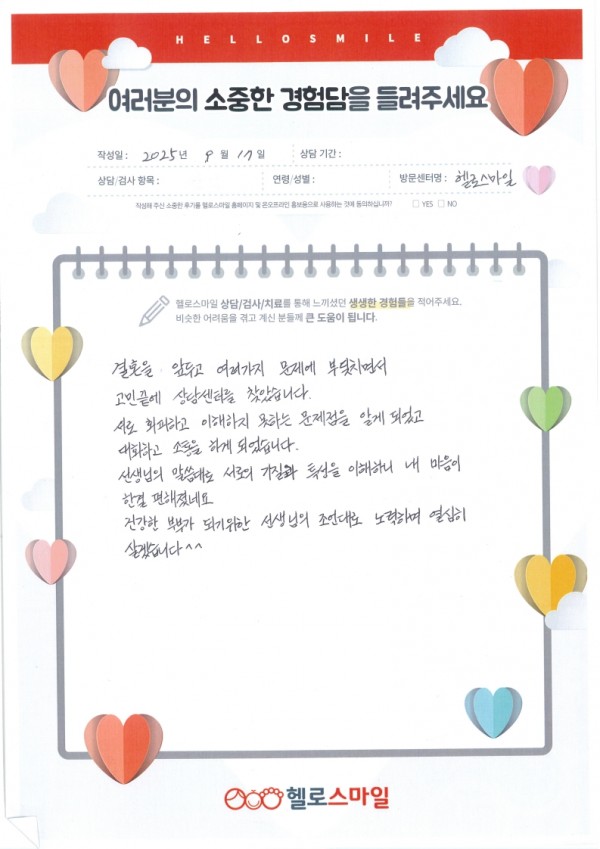 HELLOSMILE
여러분의 소중한 경험담을 들려주세요
작성일 : 2025년 9월 17일 상담 기간 :
상담/검사 항목 : 연령/성별 : 방문센터명 : 헬로스마일
작성해 주신 소중한 후기를 헬로스마일 홈페이지 및 온오프라인 홍보용으로 사용하는 것에 동의하십니까? □ YES □ NO
헬로스마일 상담/검사/치료를 통해 느끼셨던 생생한 경험들을 적어주세요.
비슷한 어려움을 겪고 계신 분들께 큰 도움이 됩니다.
결혼을 앞두고 여러가지 문제에 부딪치면서
고민끝에 상담센터를 찾았습니다.
서로 회피하고 이해하지 못하는 문제점을 알게 되었고
대화하고 소통을 하게 되었습니다.
선생님의 말씀대로 서로의 기질과 특성을 이해하니 내 마음이
한결 편해졌네요
건강한 부부가 되기위한 선생님의 조언대로 노력하며 열심히
살겠습니다^^
헬로스마일